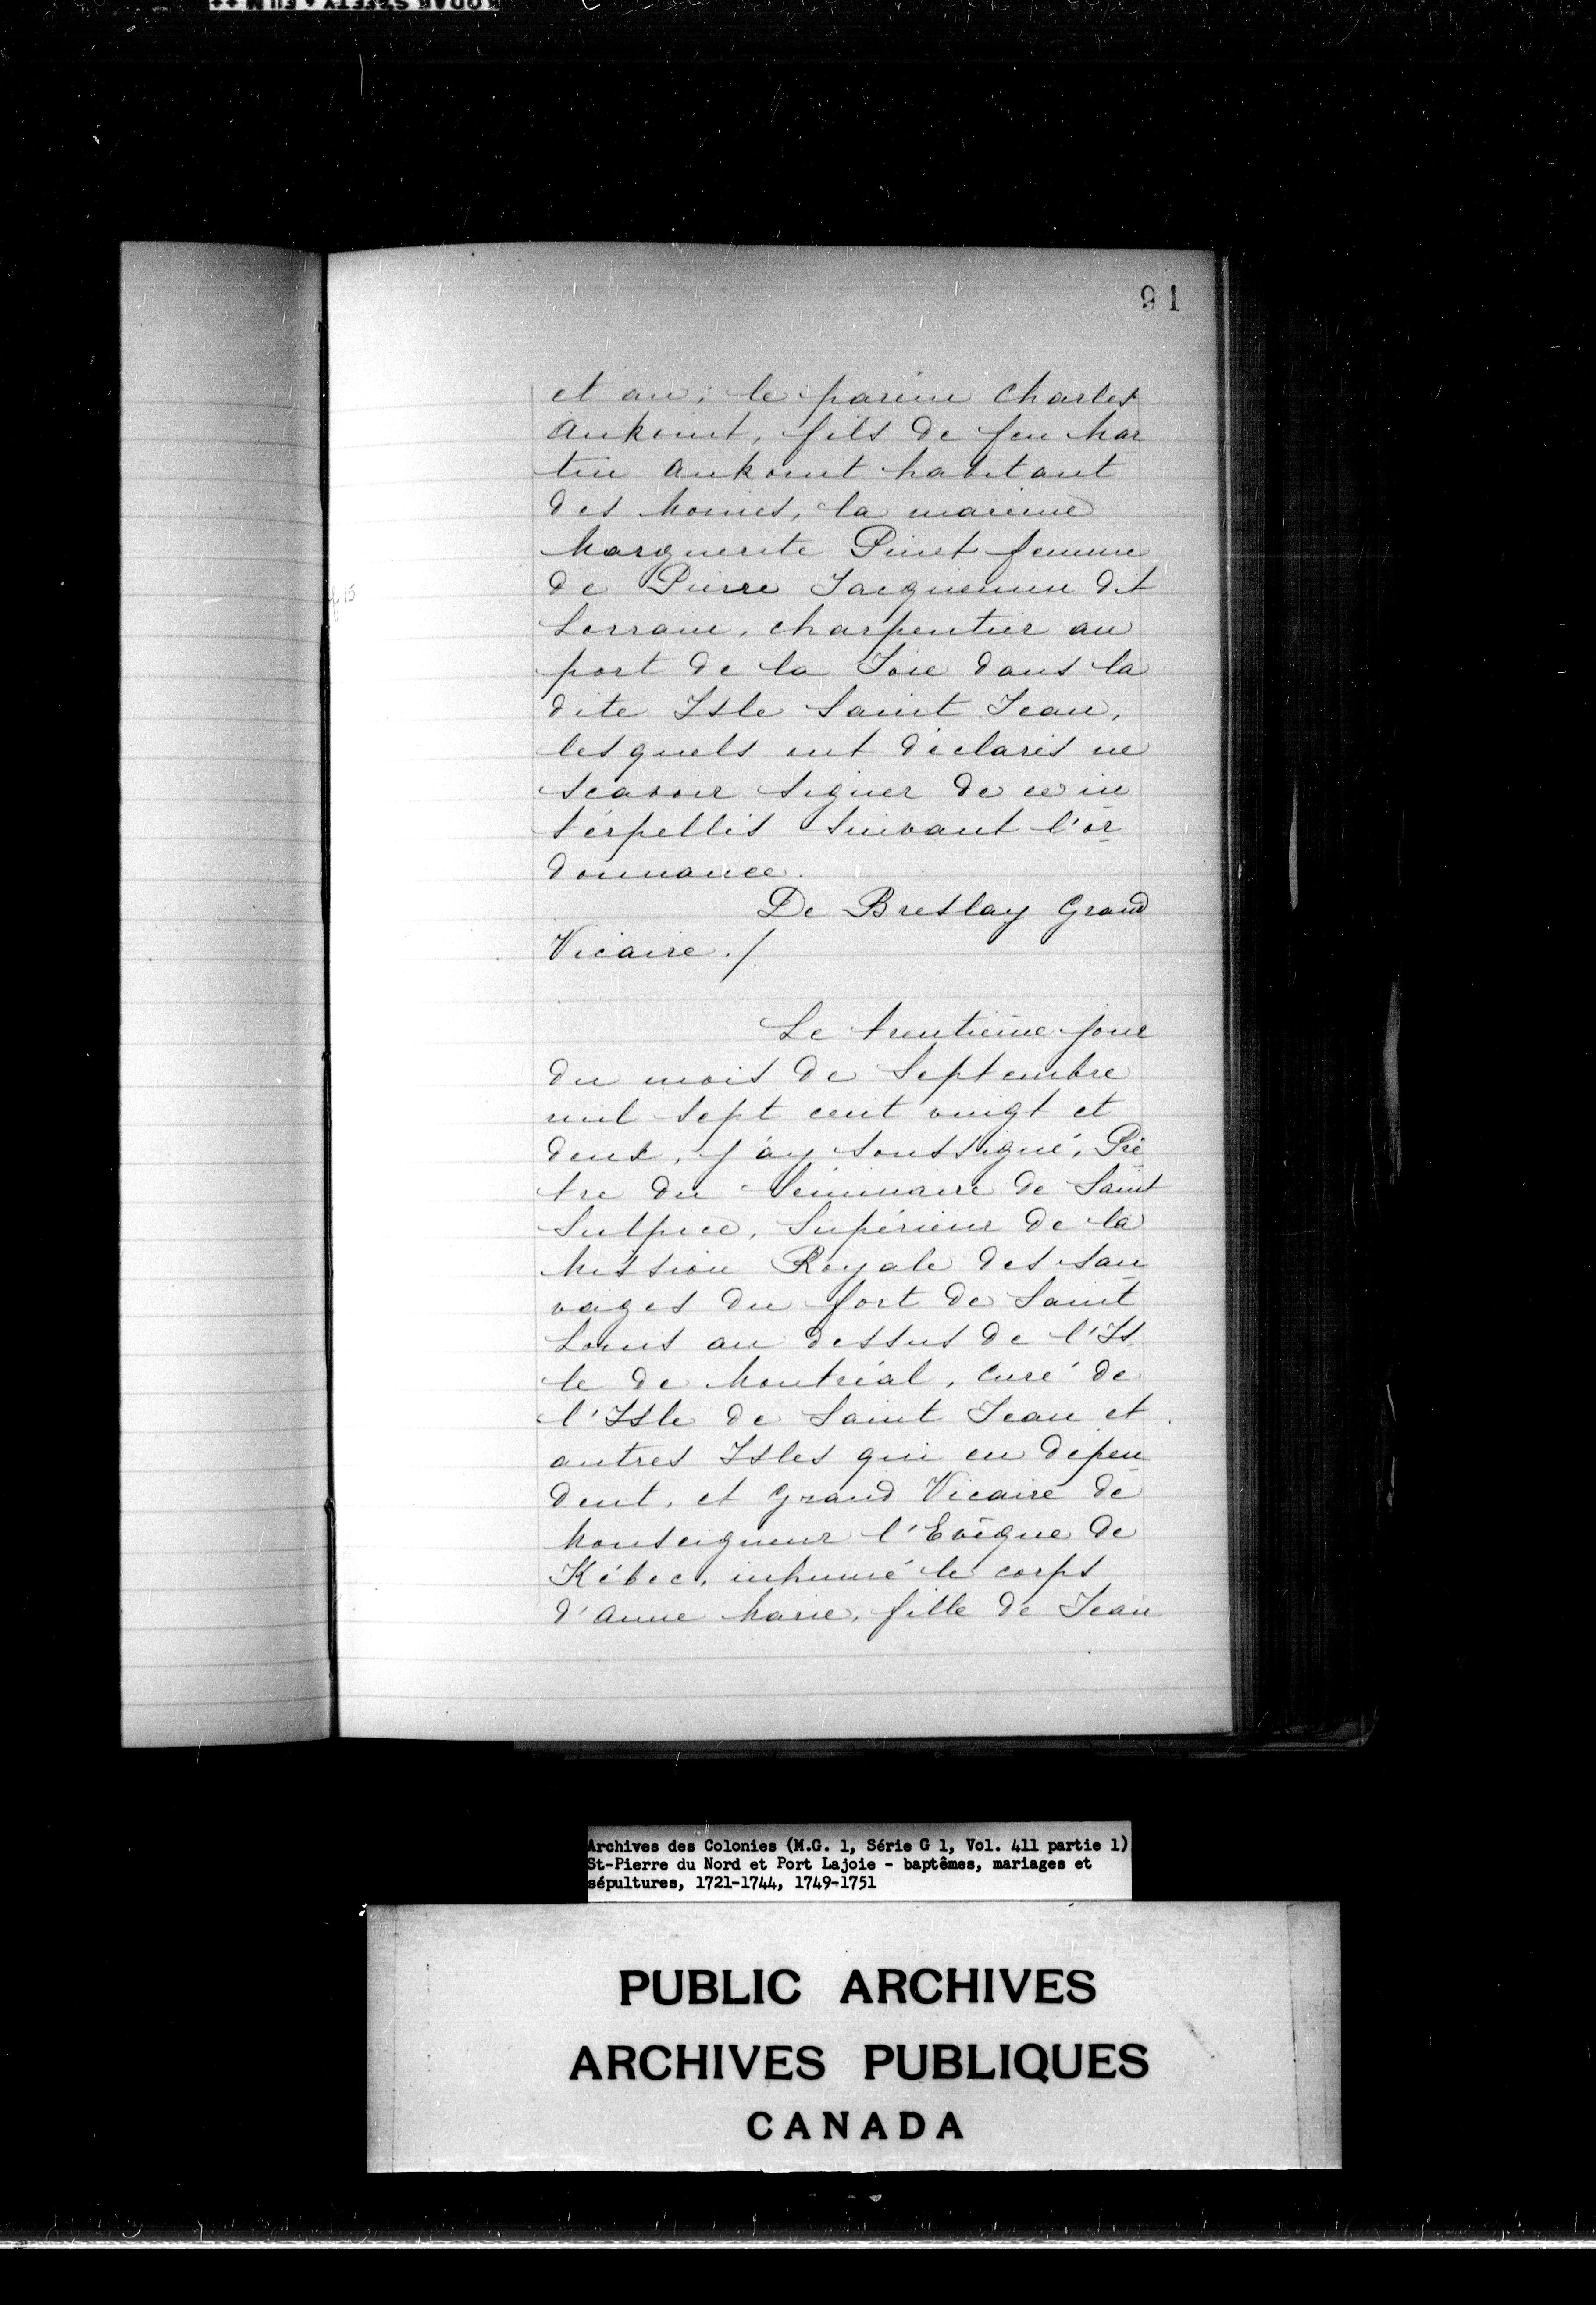 91
et an; le parein Charles
Aukouit, fils de feu Mar
tin Aukouit habitant
des Moines, la mareine
Marguerite Pinet femme
de Pierre Jacquemin dit
Lorrain, charpentier au
port de la Joie dans la
dite Isle Saint Jean,
lesquels ont déclarés ne
scavoir signer de ce in
terpellés suivant l'or
donnance.
De Breslay Grand
Vicaire ./
Le trentième jour
du mois de Septembre
mil sept cent vingt et
deux, j'ay soussigné, Prê
tre du Séminaire de Saint
Sulpice, Supérieur de la
Mission Royale des sau
vages du fort de Saint
Louis au dessus de l'Is
le de Montréal, Curé de
l'Isle de Saint Jean et
autres Isles qui en dépen
dent, et Grand Vicaire de
Monseigneur l'Evêque de
Kébec, inhumé le corps
d'Anne Marie, fille de Jean
Archives des Colonies (M.G. 1, Série G 1, Vol. 411 partie 1)
St-Pierre du Nord et Port Lajoie - baptêmes, mariages et
sépultures, 1721-1744, 1749-1751
PUBLIC ARCHIVES
ARCHIVES PUBLIQUES
CANADA